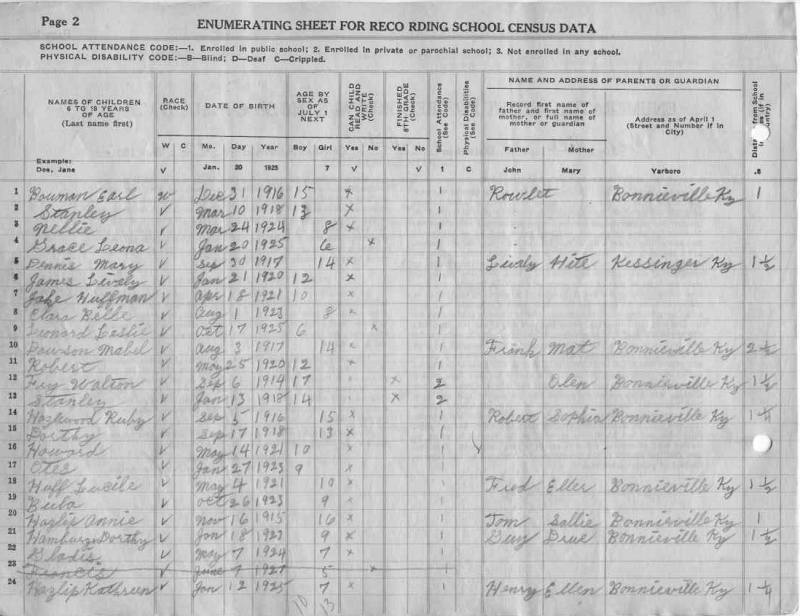 Page 2
ENUMERATING SHEET FOR RECO RDING SCHOOL CENSUS DATA
SCHOOL ATTENDANCE CODE:—1. Enrolled in public school; 2. Enrolled in private or parochial school; 3. Not enrolled in any school.
PHYSICAL DISABILITY CODE:—B—Blind; D—Deaf C—Crippled.
NAMES OF CHILDREN 6 TO 18 YEARS OF AGE (Last name first)
RACE (Check)
DATE OF BIRTH
AGE BY SEX AS OF JULY 1 NEXT
CAN CHILD READ AND WRITE (Check)
FINISHED 8TH GRADE (Check)
School Attendance (See Code)
Physical Disabilities (See Code)
NAME AND ADDRESS OF PARENTS OR GUARDIAN
Record first name of father and first name of mother, or full name of mother or guardian
Address as of April 1 (Street and Number if in City)
from School
W C Mo. Day Year Boy Girl Yes No Yes No 1 C Father Mother
Example:
Doe, Jane V Jan. 20 1925 7 V V 1 John Mary Yarboro .8
1 Bowman Earl W Dec 31 1916 15 x 1 Rowlet Bonnieville Ky 1
2 Stanley V Mar 10 1918 13 x 1
3 Nellie V Mar 24 1924 8 x 1
4 Grace Leona V Jan 20 1925 6 x 1
5 Dennis Mary V Sep 30 1917 14 x 1 Lively Hite Kessinger Ky 1 1/2
6 James Lively V Jan 21 1920 12 x 1
7 Jake Huffman V Apr 18 1921 10 x 1
8 Clara Belle V Aug 1 1923 8 x 1
9 Leonard Leslie V Oct 17 1925 6 x 1
10 Dawson Mabel V Aug 3 1917 14 x 1 Frank Mat Bonnieville Ky 2 1/2
11 Robert V May 25 1920 12 x 1
12 Fry Walton V Sep 6 1914 17 x 2 Olen Bonnieville Ky 1 1/2
13 Stanley V Jan 13 1918 14 x 2
14 Hazelwood Ruby V Sep 5 1916 15 x 1 Robert Sophia Bonnieville Ky 1 1/4
15 Dorthy V Sep 17 1918 13 x 1
16 Howard V May 14 1921 10 x 1
17 Otes V Jan 27 1923 9 x 1
18 Huff Lucile V May 4 1921 10 x 1 Fred Eller Bonnieville Ky 1 1/2
19 Beula V Oct 26 1923 9 x 1
20 Hazlip Annie V Nov 16 1915 16 x 1 Tom Sallie Bonnieville Ky 1
21 Dorthy V Jan 18 1923 9 x 1 Guy Bonnieville Ky 1 1/2
22 Gladis V May 7 1924 7 x 1
23 Francis V June 7 1927 5 x 1
24 Hazlip Kathreen V Jan 12 1925 7 x 1 Henry Ellen Bonnieville Ky 1 1/4
10 13